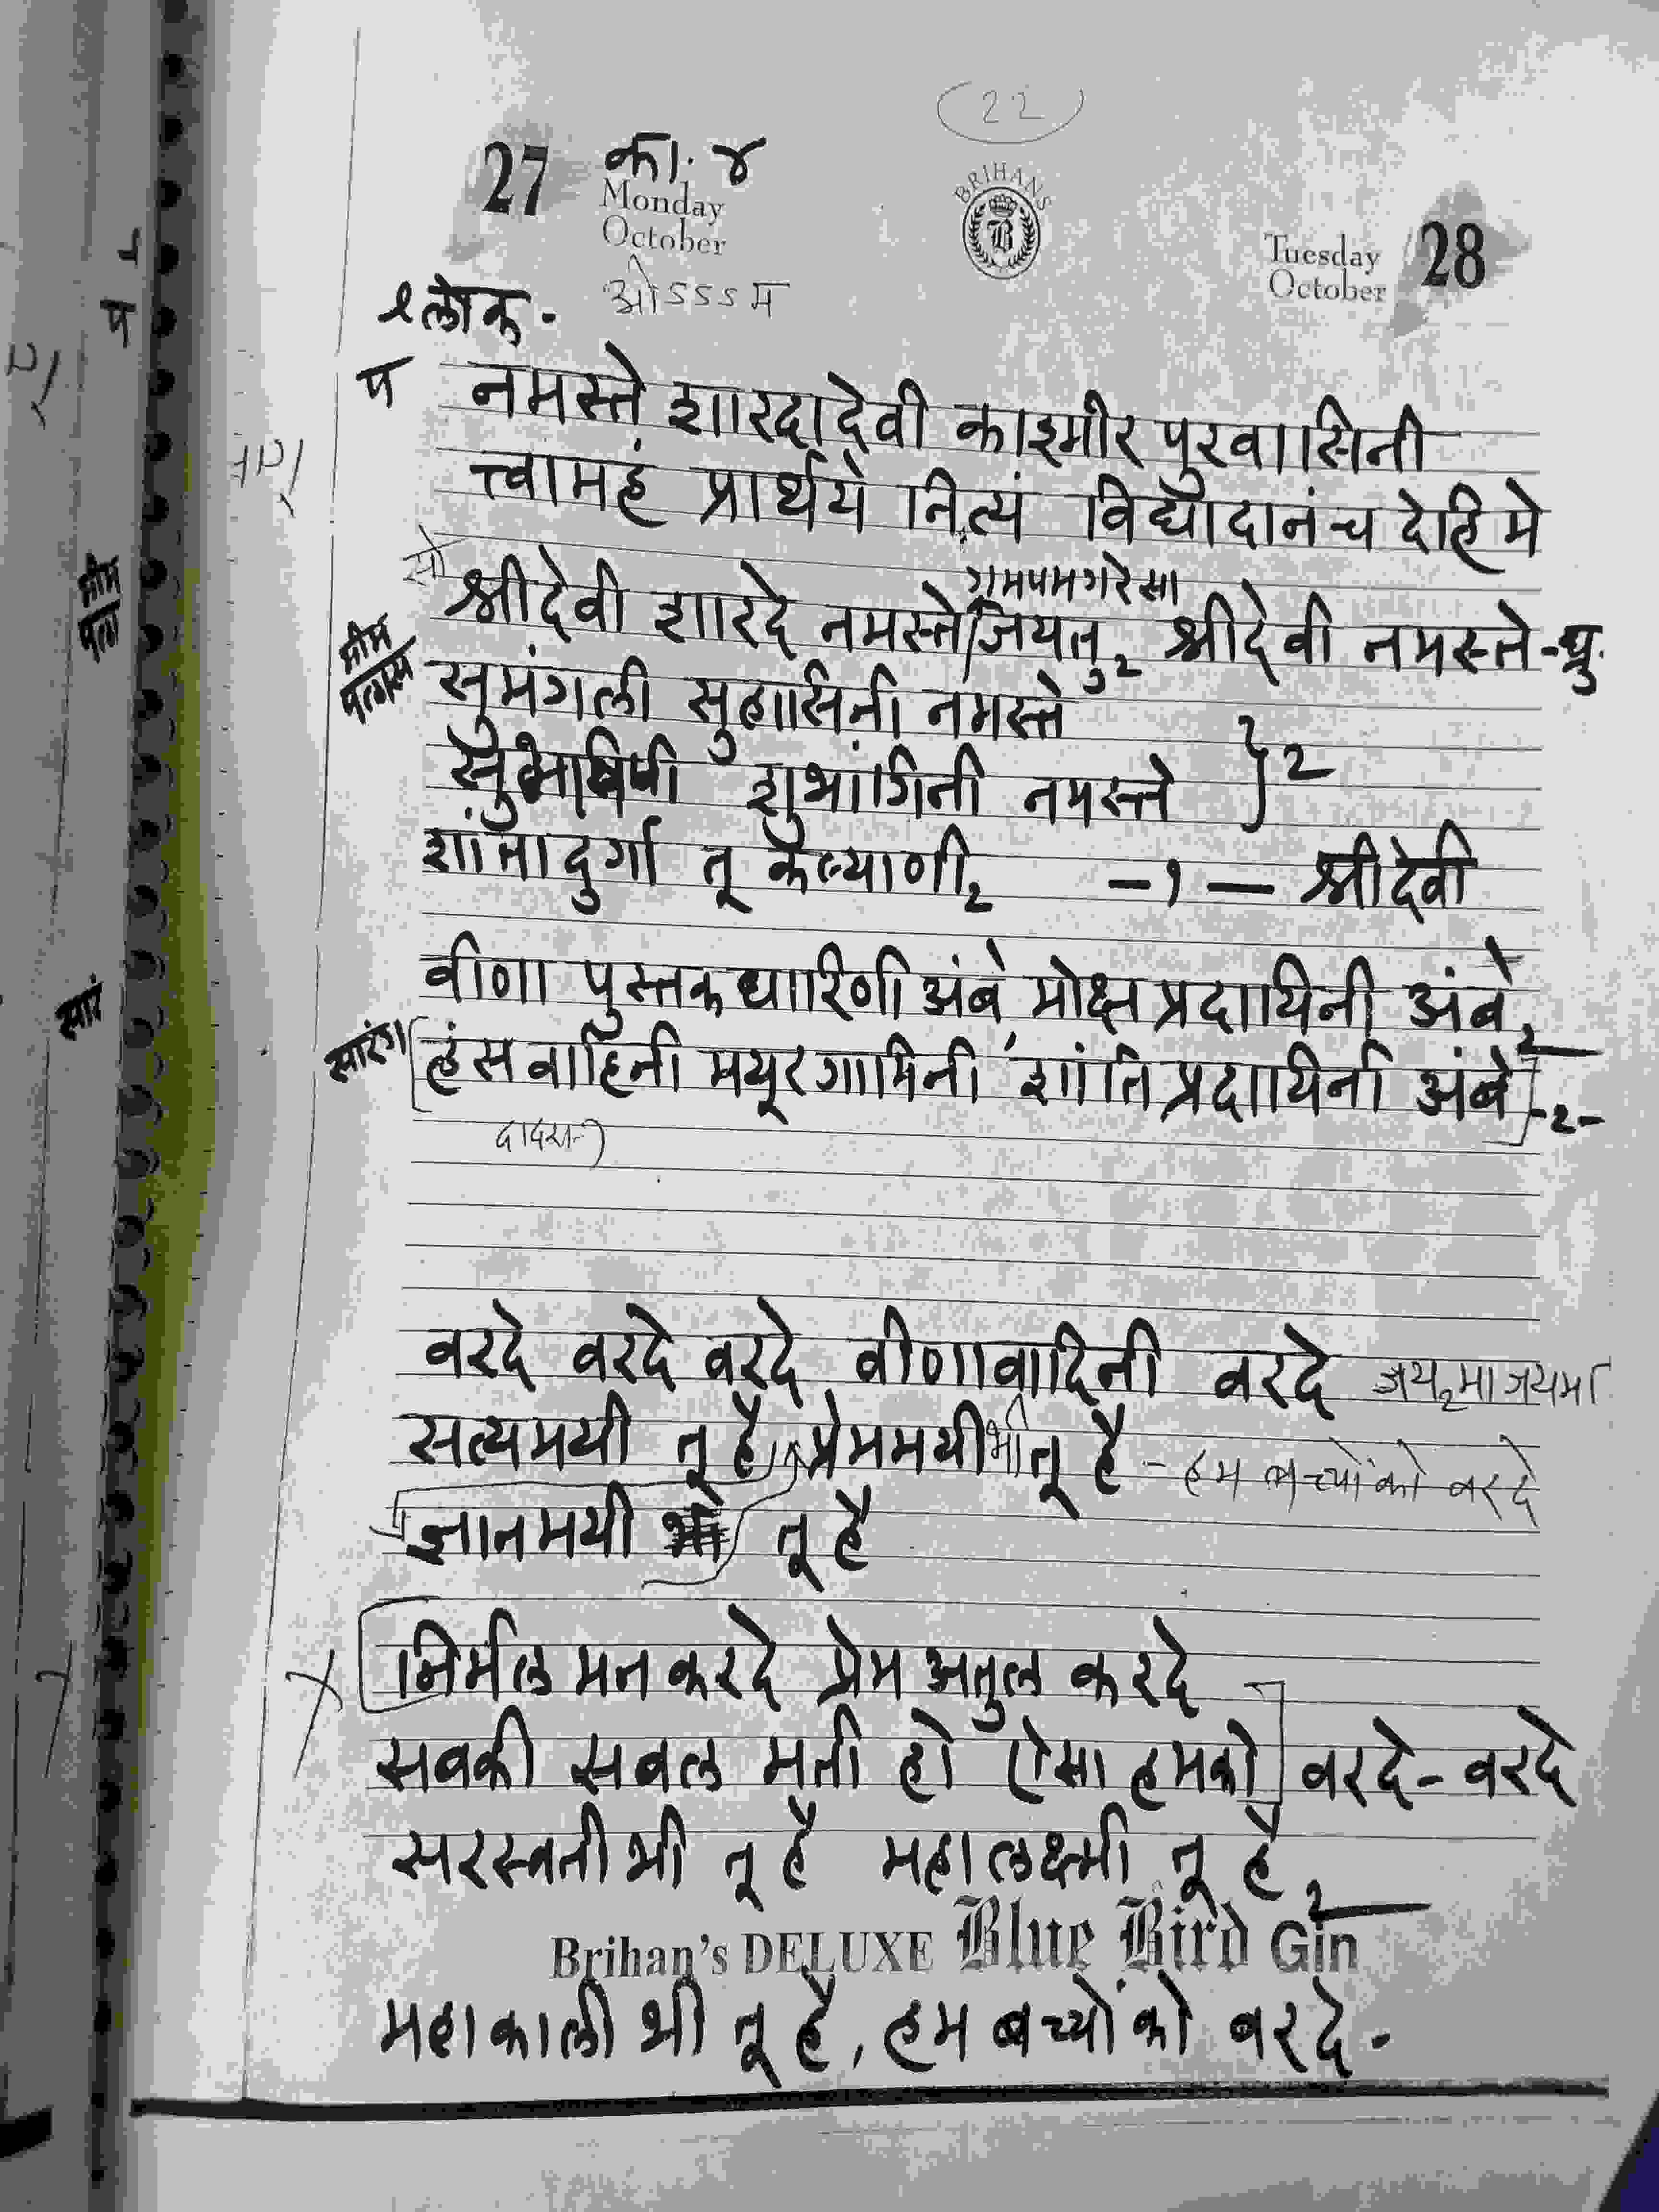 22
27 का. ४
Monday
October
BRIHANS
B
Tuesday
October
28
श्लोक - ओऽऽऽम
प नमस्ते शारदादेवी काश्मीर पुरवासिनी
त्वामहं प्रार्थये नित्यं विद्यादानंच देहि मे
गमपमगरेसा
श्रीदेवी शारदे नमस्ते/जयतु२ श्रीदेवी नमस्ते-ध्रु.
भीम पलास सुमंगली सुहासिनी नमस्ते
सुभाषिणी शुभांगिनी नमस्ते } 2
शांतादुर्गा तू कल्याणी२ -१- श्रीदेवी
वीणा पुस्तक धारिणी अंबे, मोक्ष प्रदायिनी अंबे,२
सारंग [हंस वाहिनी मयूर गामिनी शांति प्रदायिनी अंबे]-२-
वरदे वरदे वरदे वीणावादिनी वरदे जय२मा जयमा
सत्यमयी तू है, प्रेममयी भी तू है - हम बच्योंको वरदे
ज्ञानमयी तू है
[निर्मल मन करदे प्रेम अतुल करदे
सबकी सबल मती हो ऐसा हमको] वरदे - वरदे
सरस्वती भी तू है महालक्ष्मी तू है२
Brihan's DELUXE Blue Bird Gin
महाकाली भी तू है, हम बच्यों को वरदे -
भीम
पला
सारं
प